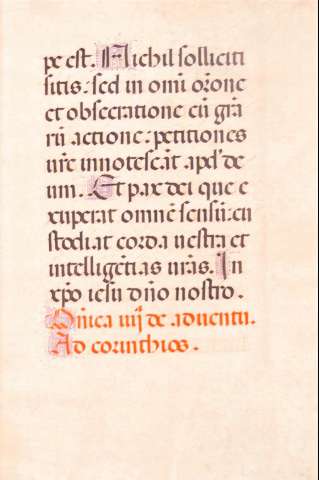 pe est. Nichil solliciti
sitis: sed in omi orone
et obsecratione cu gra
ru actione: petitiones
ure innotescat apd' de
um. Et pax dei que e
xuperat omne sensu: cu
stodiat corda uestra et
intelligentias uras. In
xpo iesu dno nostro.
Dnica iiij de aduentu.
Ad corinthios.